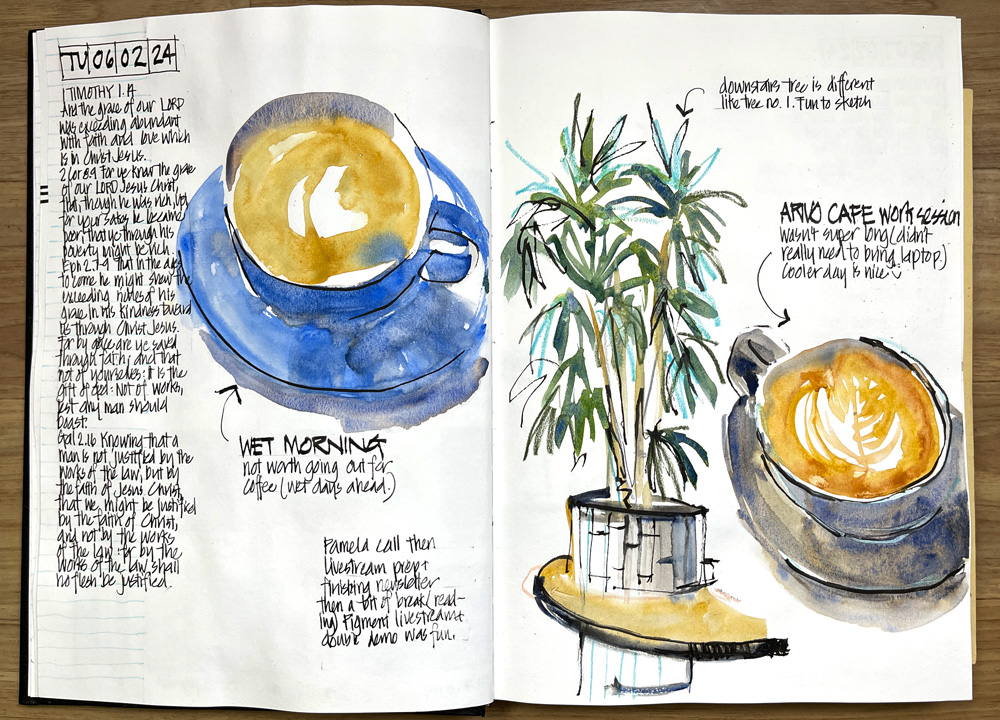 TU 06 02 24
1 TIMOTHY 1.14
And the grace of our LORD
was exceeding abundant
with faith and love which
is in Christ Jesus.
2 Cor 8.9 For ye know the grace
of our LORD Jesus Christ,
that, though he was rich, yet
for your sakes he became
poor, that ye through his
poverty might be rich.
Eph 2.7-9 That in the ages
to come he might shew the
exceeding riches of his
grace in his kindness toward
us through Christ Jesus.
For by grace are ye saved
through faith; and that
not of yourselves: it is the
gift of God: Not of works,
lest any man should
boast.
Gal 2.16 Knowing that a
man is not justified by the
works of the law, but by
the faith of Jesus Christ,
that we might be justified
by the faith of Christ,
and not by the works
of the law: for by the
works of the law shall
no flesh be justified.
WET MORNING
not worth going out for
coffee (wet days ahead.)
Pamela call then
livestream prep +
finishing newsletter
then a bit of break (read-
ing) Figment livestream +
double demo was fun.
downstairs tree is different
like tree no. 1. Fun to sketch
ARVO CAFE work session
wasn't super long (didn't
really need to bring laptop.)
cooler day is nice